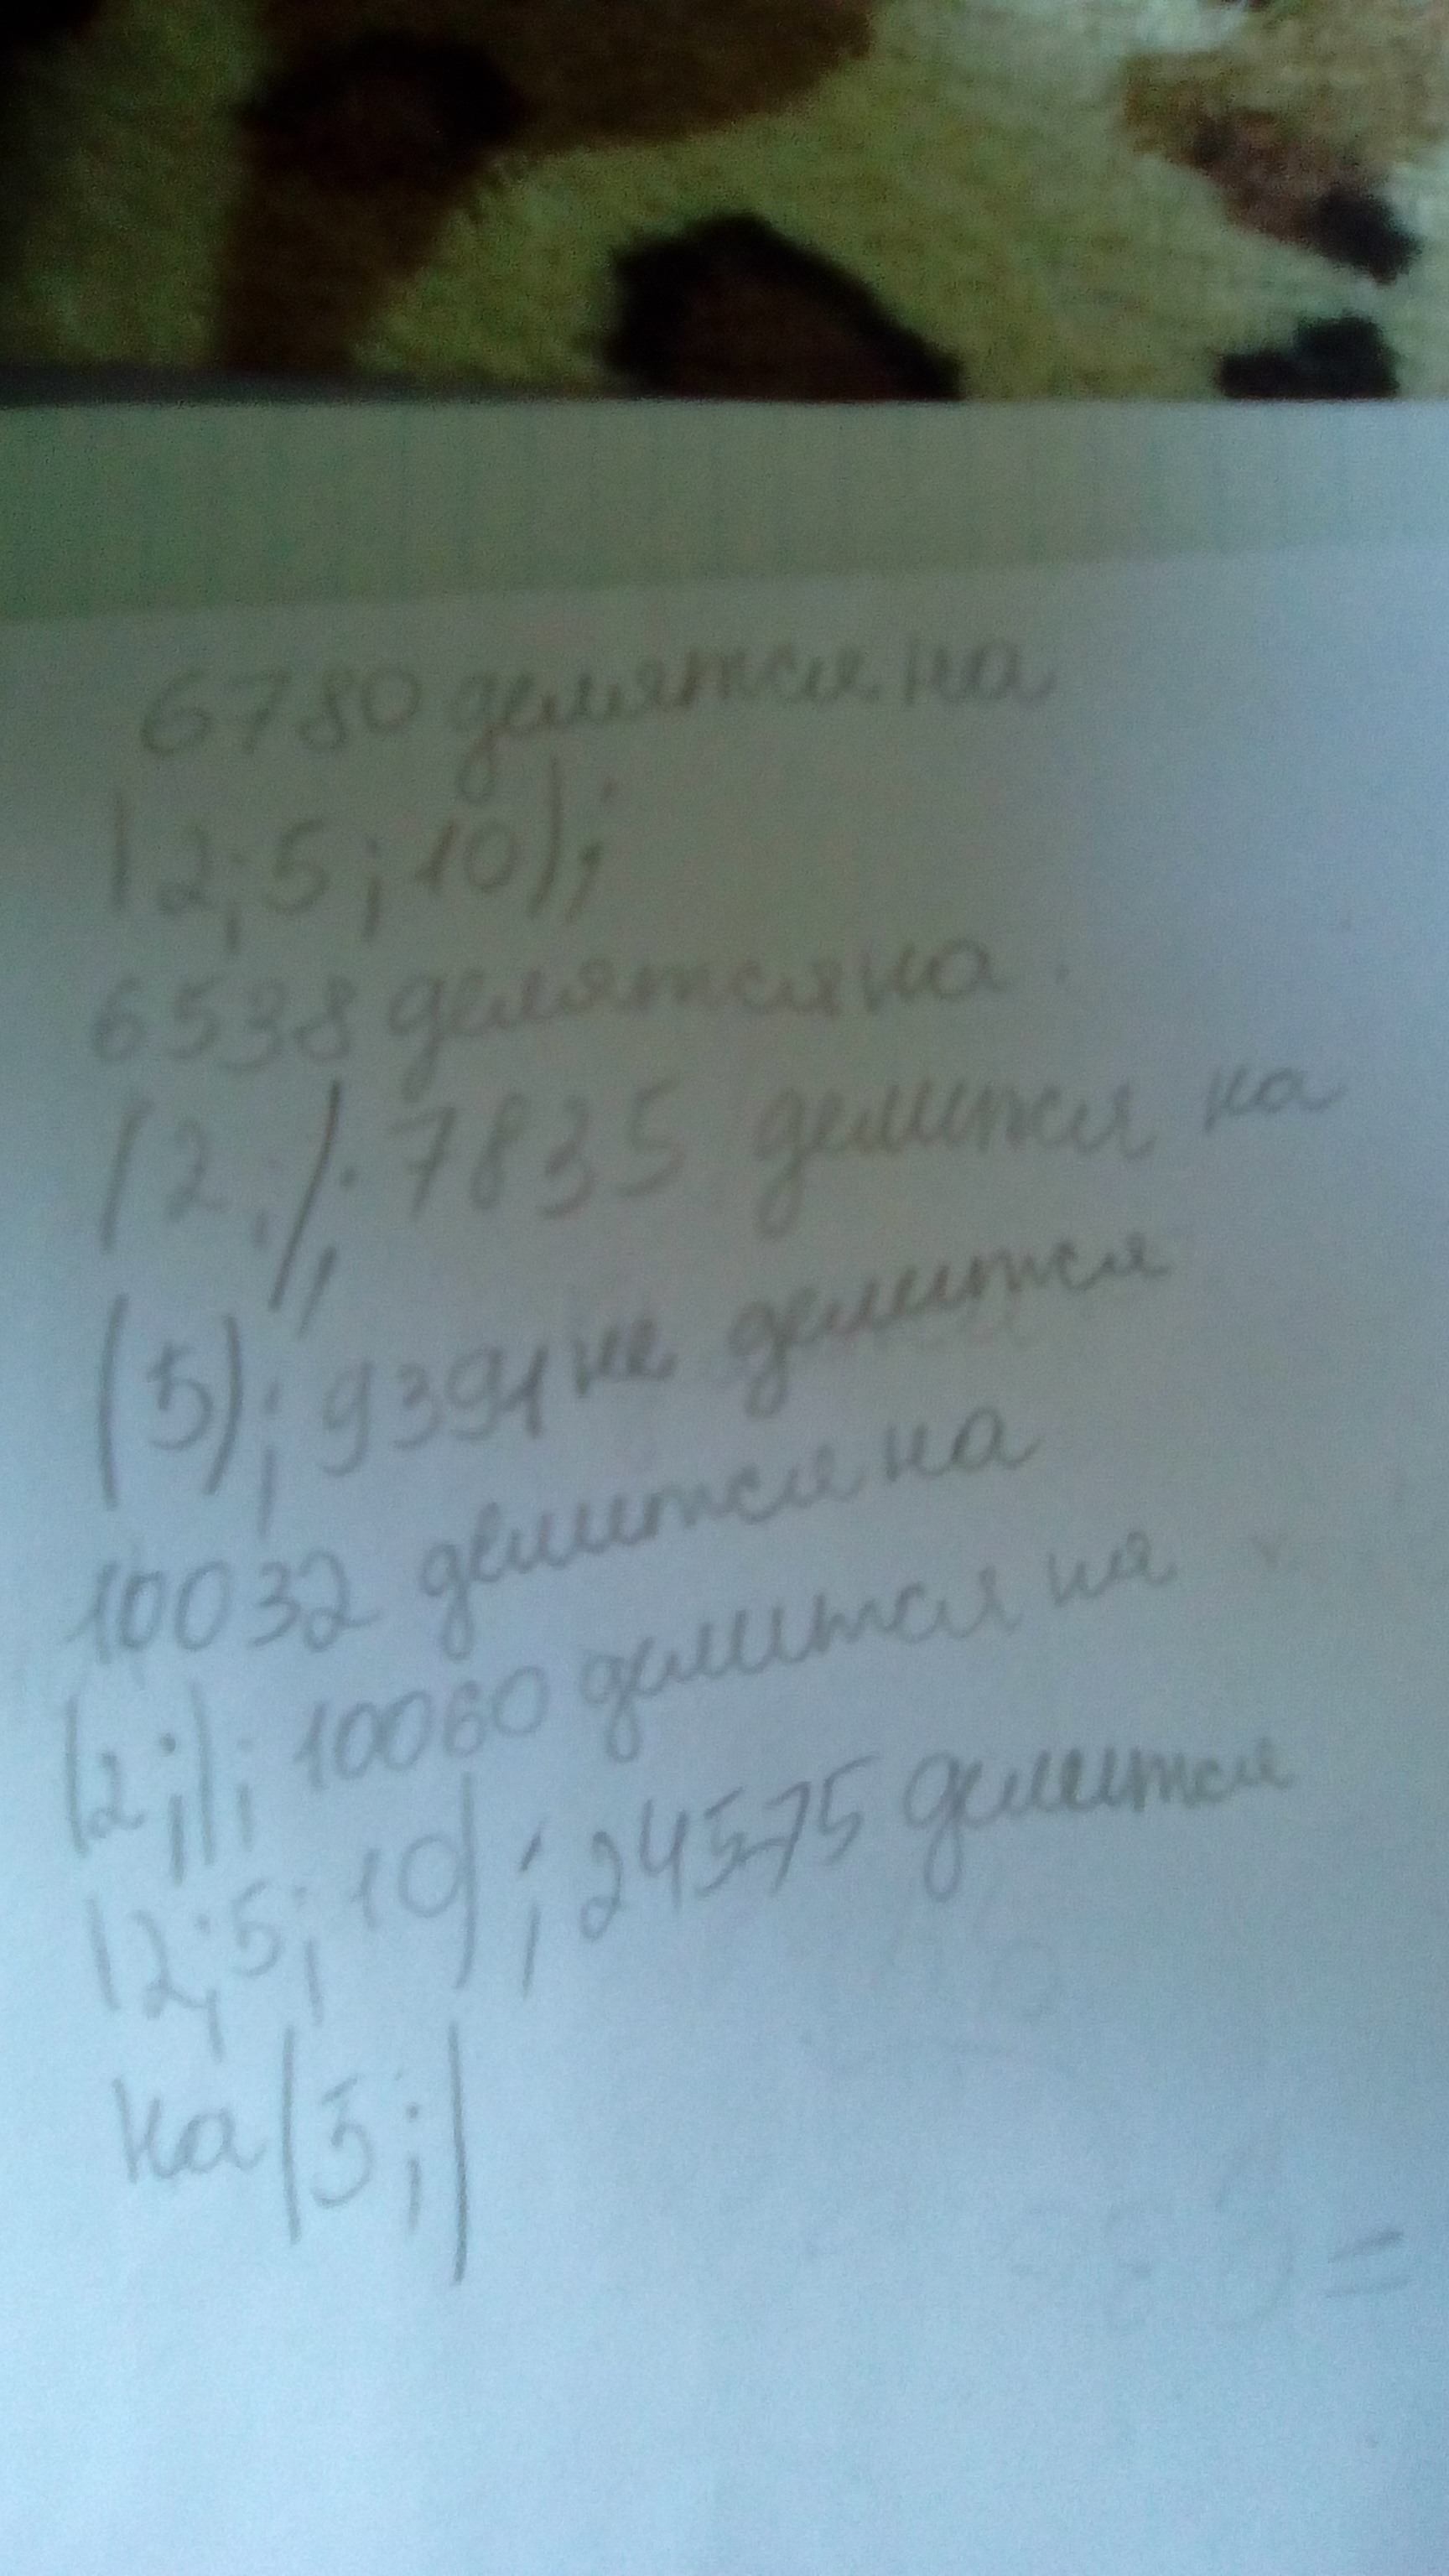 6780 делятся на
(2; 5; 10);
6538 делятся на
(2;); 7835 делится на
(5); 9391 не делится
10032 делится на
(2;); 10060 делится на
(2; 5; 10); 24575 делится
на (5;)
=